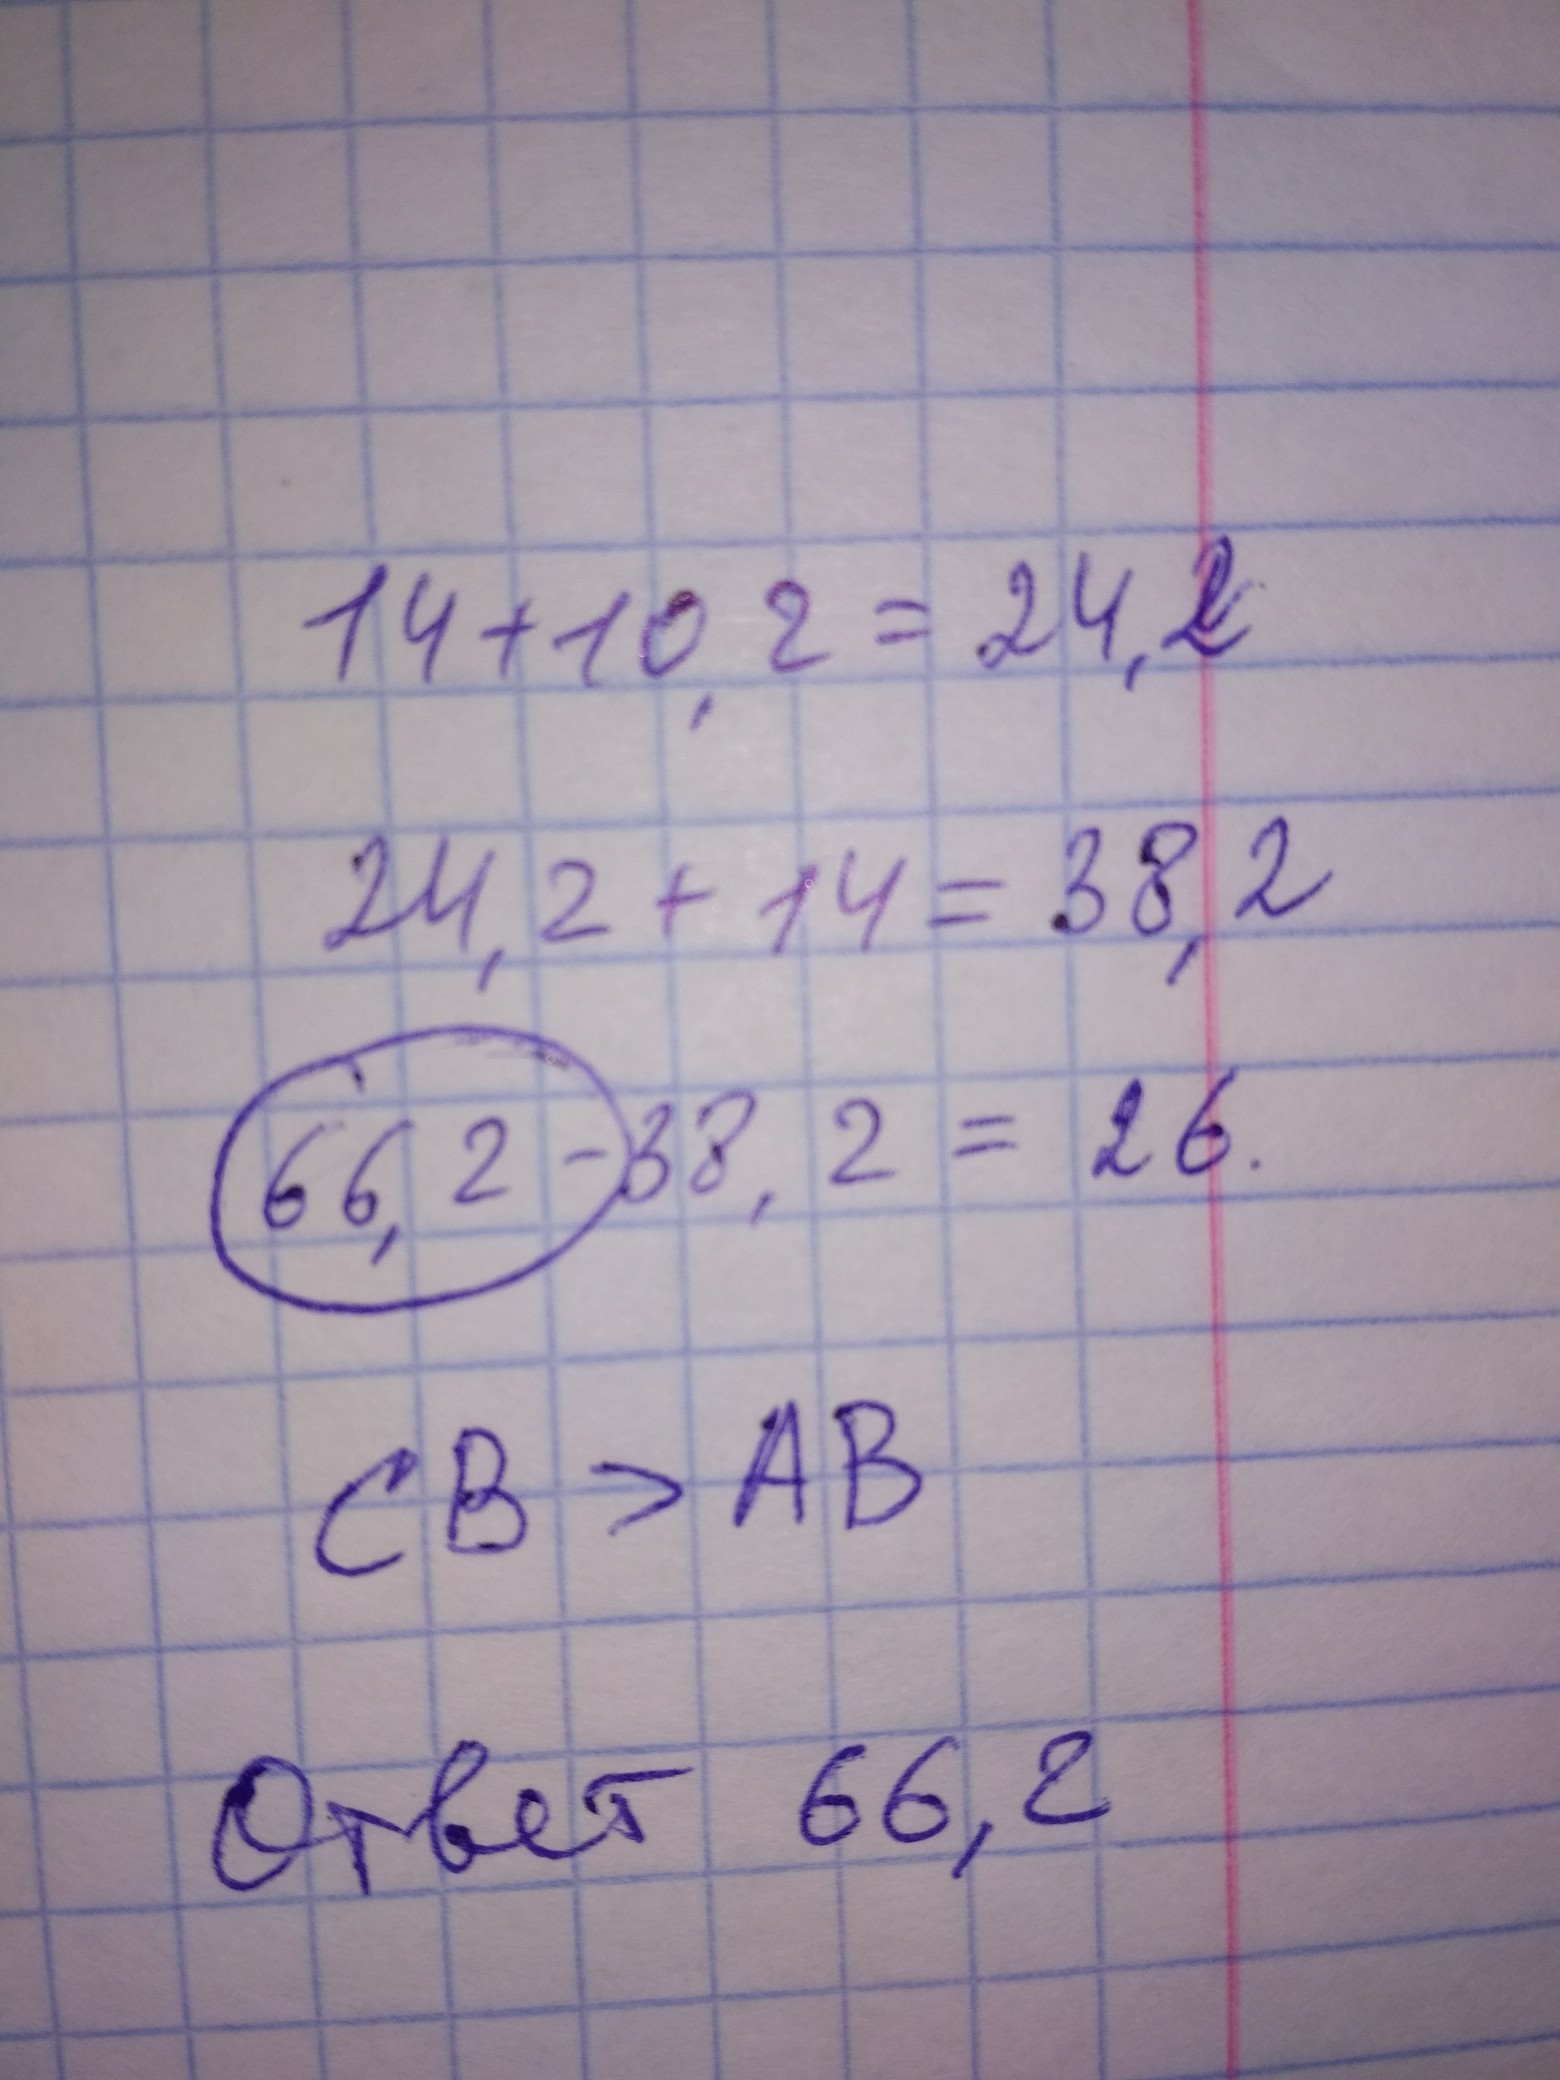 14+10,2=24,2
24,2+14=38,2
66,2-38,2=26.
СВ>АВ
Ответ 66,2